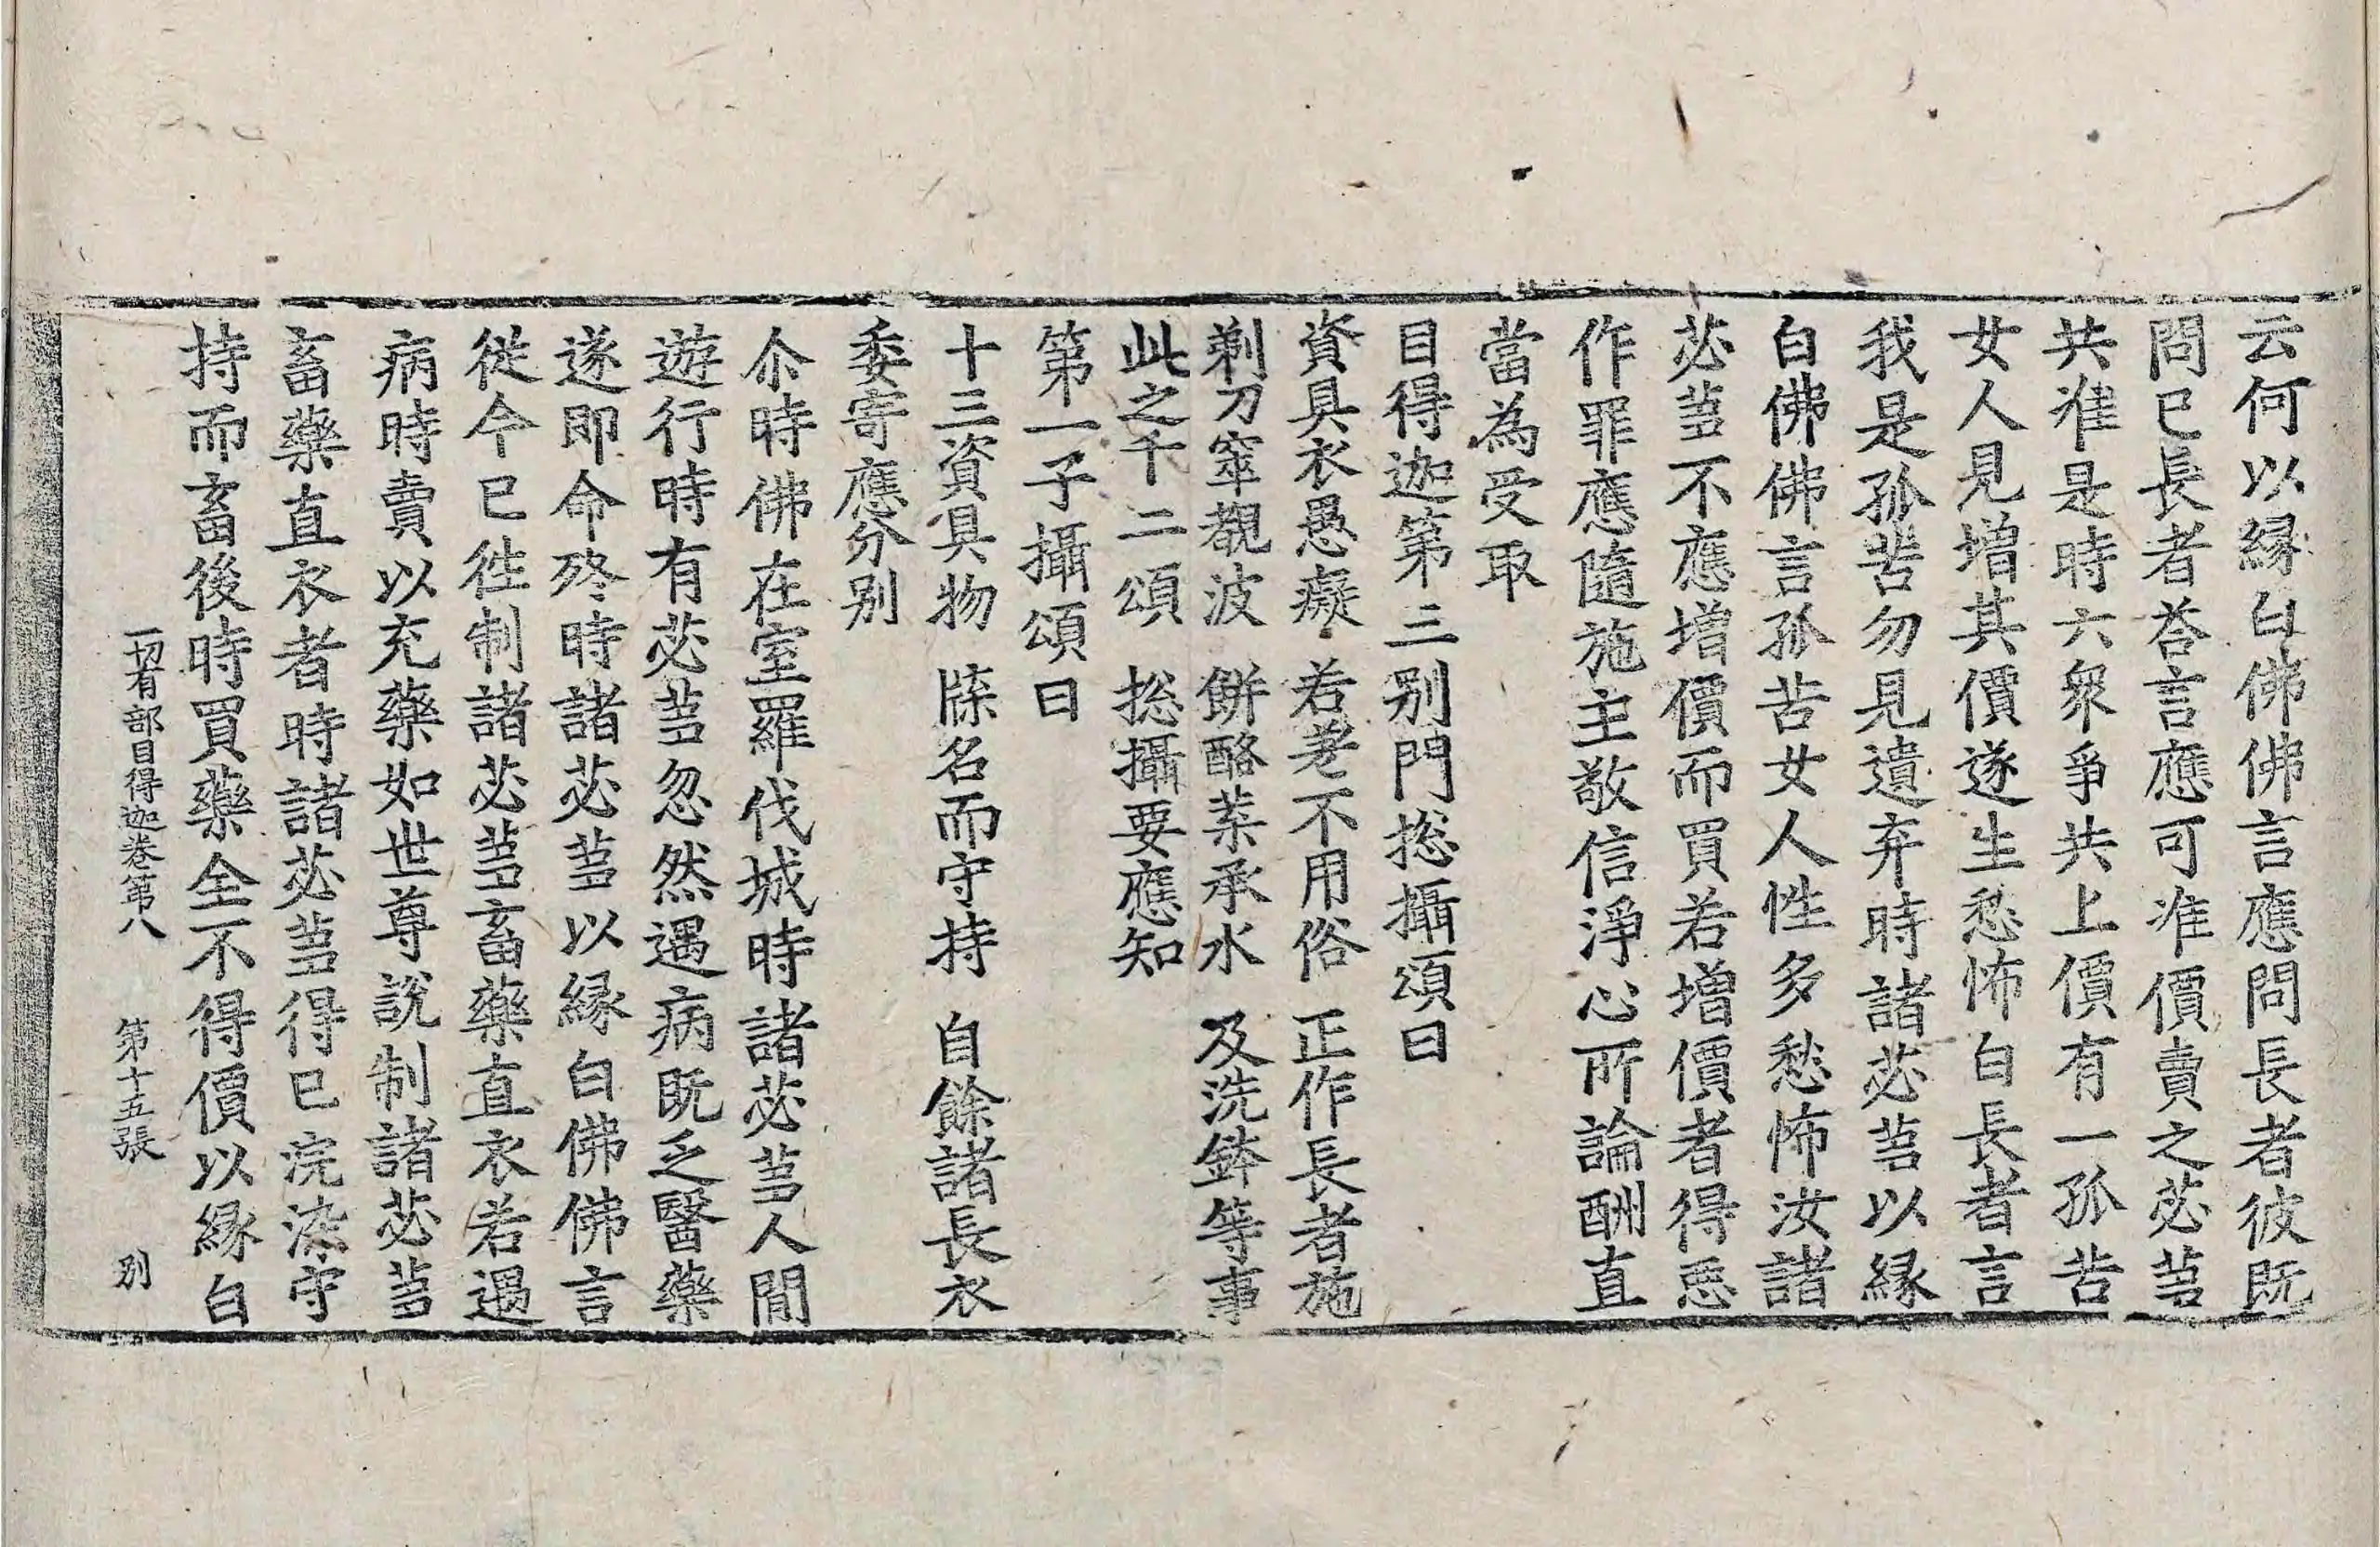 云何以縁白佛佛言應問長者彼旣
問已長者荅言應可准價賣之苾蒭
共准是時六衆爭共上價有一孤苦
女人見増其價遂生愁怖白長者言
我是孤苦勿見遺弃時諸苾蒭以縁
白佛佛言孤苦女人性多愁怖汝諸
苾蒭不應増價而買若増價者得惡
作罪應隨施主敬信淨心所論酬直
當為受取
目得迦第三别門捴攝頌曰
資具衣愚癡　若老不用俗　正作長者施
剃刀窣覩波　餅酪葉承水　及洗鉢等事
此之千二頌　捴攝要應知
第一子攝頌曰
十三資具物　牒名而守持　自餘諸長衣
委寄應分别
尒時佛在室羅伐城時諸苾蒭人間
遊行時有苾蒭忽然遇病旣乏醫藥
遂即命終時諸苾蒭以縁白佛佛言
從今已徃制諸苾蒭畜藥直衣若遇
病時賣以充藥如世尊說制諸苾蒭
畜藥直衣者時諸苾蒭得已浣染守
持而畜後時買藥全不得價以縁白
一切有部目得迦卷第八　第十五張　别